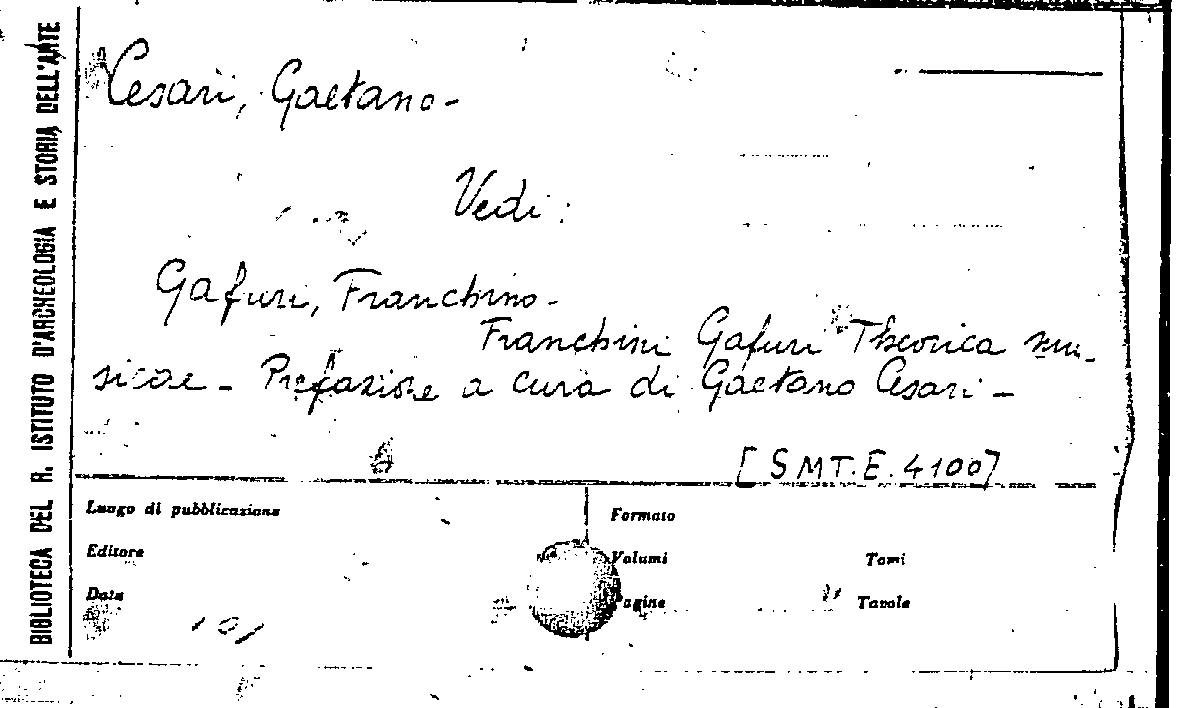 BIBLIOTECA DEL R. ISTITUTO D'ARCHEOLOGIA E STORIA DELL'ARTE
Cesari, Gaetano-
Vedi:
Gafuri, Franchino-
Franchini Gafuri Theorica mu-
sicae - Prefazione a cura di Gaetano Cesari -
[SMT.E.4100]
Luogo di pubblicazione
Formato
Editore
Volumi
Tomi
Data
Pagine
Tavole